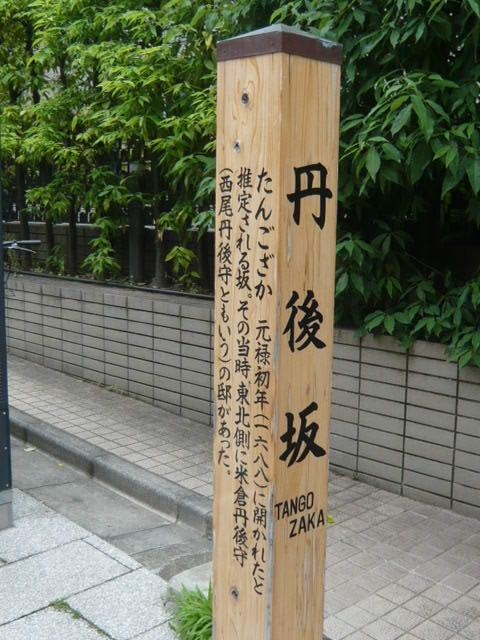 丹後坂
TANGO
ZAKA
たんござか 元禄初年(一六八八)に開かれたと
推定される坂。その当時東北側に米倉丹後守
(西尾丹後守ともいう)の邸があった。